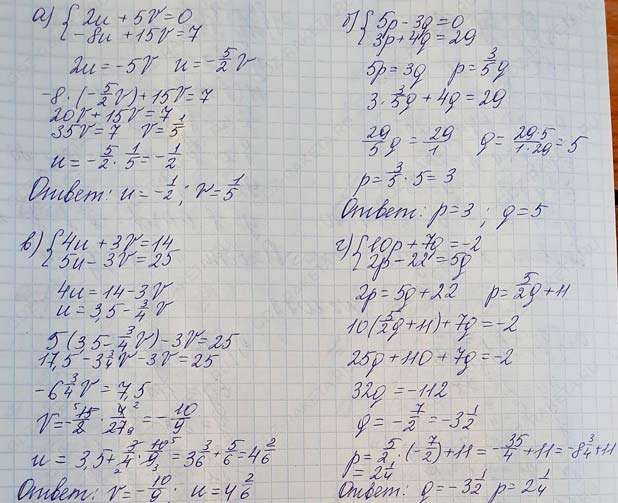 а) { 2u + 5v = 0
-8u + 15v = 7
2u = -5v u = -5/2 v
-8 · (-5/2 v) + 15v = 7
20v + 15v = 7
35v = 7 v = 1/5
u = -5/2 · 1/5 = -1/2
Ответ: u = -1/2 ; v = 1/5
б) { 5p - 3q = 0
3p + 4q = 29
5p = 3q p = 3/5 q
3 · 3/5 q + 4q = 29
29/5 q = 29/1 q = 29·5/1·29 = 5
p = 3/5 · 5 = 3
Ответ: p = 3 ; q = 5
в) { 4u + 3v = 14
5u - 3v = 25
4u = 14 - 3v
u = 3,5 - 3/4 v
5(3,5 - 3/4 v) - 3v = 25
17,5 - 3 3/4 v - 3v = 25
-6 3/4 v = 7,5
v = -15/2 · 4/27 = -10/9
u = 3,5 + 3/4 · 10/9 = 3 3/6 + 5/6 = 4 2/6
Ответ: v = -10/9 ; u = 4 2/6
г) { 10p + 7q = -2
2p - 22 = 5q
2p = 5q + 22 p = 5/2 q + 11
10(5/2 q + 11) + 7q = -2
25q + 110 + 7q = -2
32q = -112
q = -7/2 = -3 1/2
p = 5/2 · (-7/2) + 11 = -35/4 + 11 = -8 3/4 + 11
= 2 1/4
Ответ: q = -3 1/2 p = 2 1/4